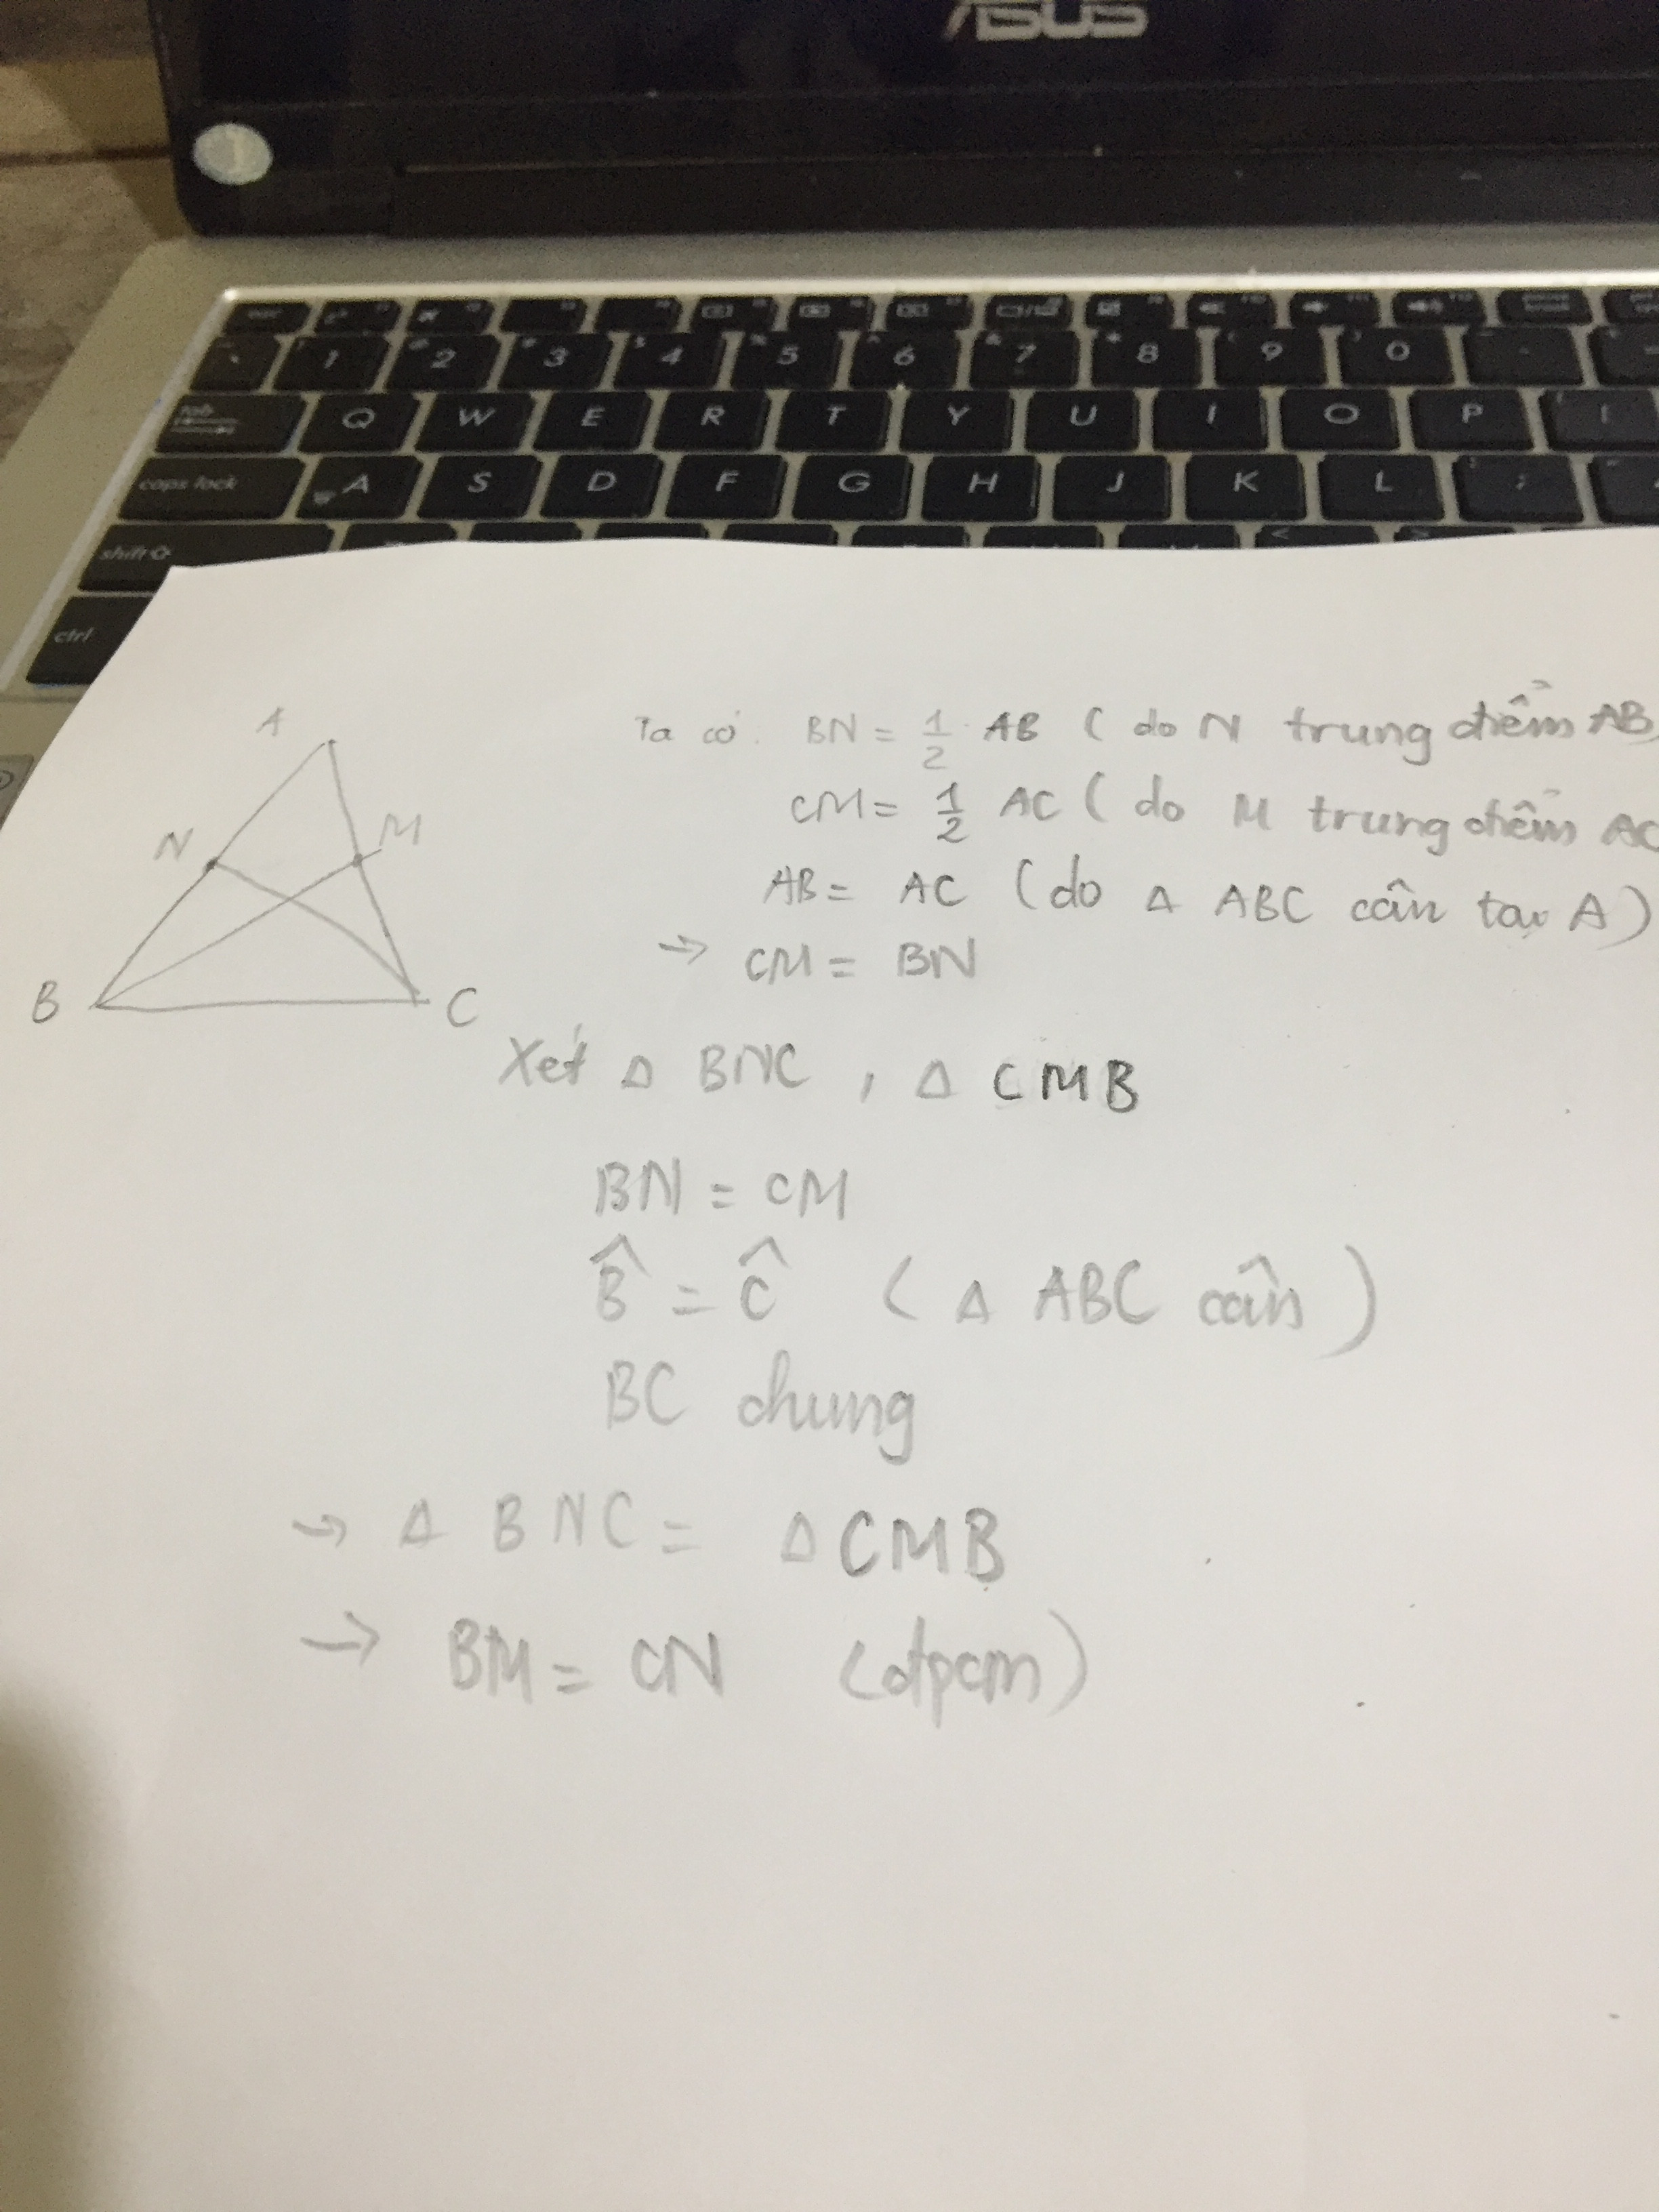 ASUS
esc
1 2 3 4 5 6 7 8 9 0
tab Q W E R T Y U I O P
caps lock A S D F G H J K L
shift
ctrl
Ta có: BN = 1/2 AB (do N trung điểm AB
CM = 1/2 AC (do M trung điểm AC
AB = AC (do Δ ABC cân tại A)
→ CM = BN
A
N M
B C
Xét Δ BNC , Δ CMB
BN = CM
B̂ = Ĉ (Δ ABC cân)
BC chung
→ Δ BNC = Δ CMB
→ BM = CN (đpcm)